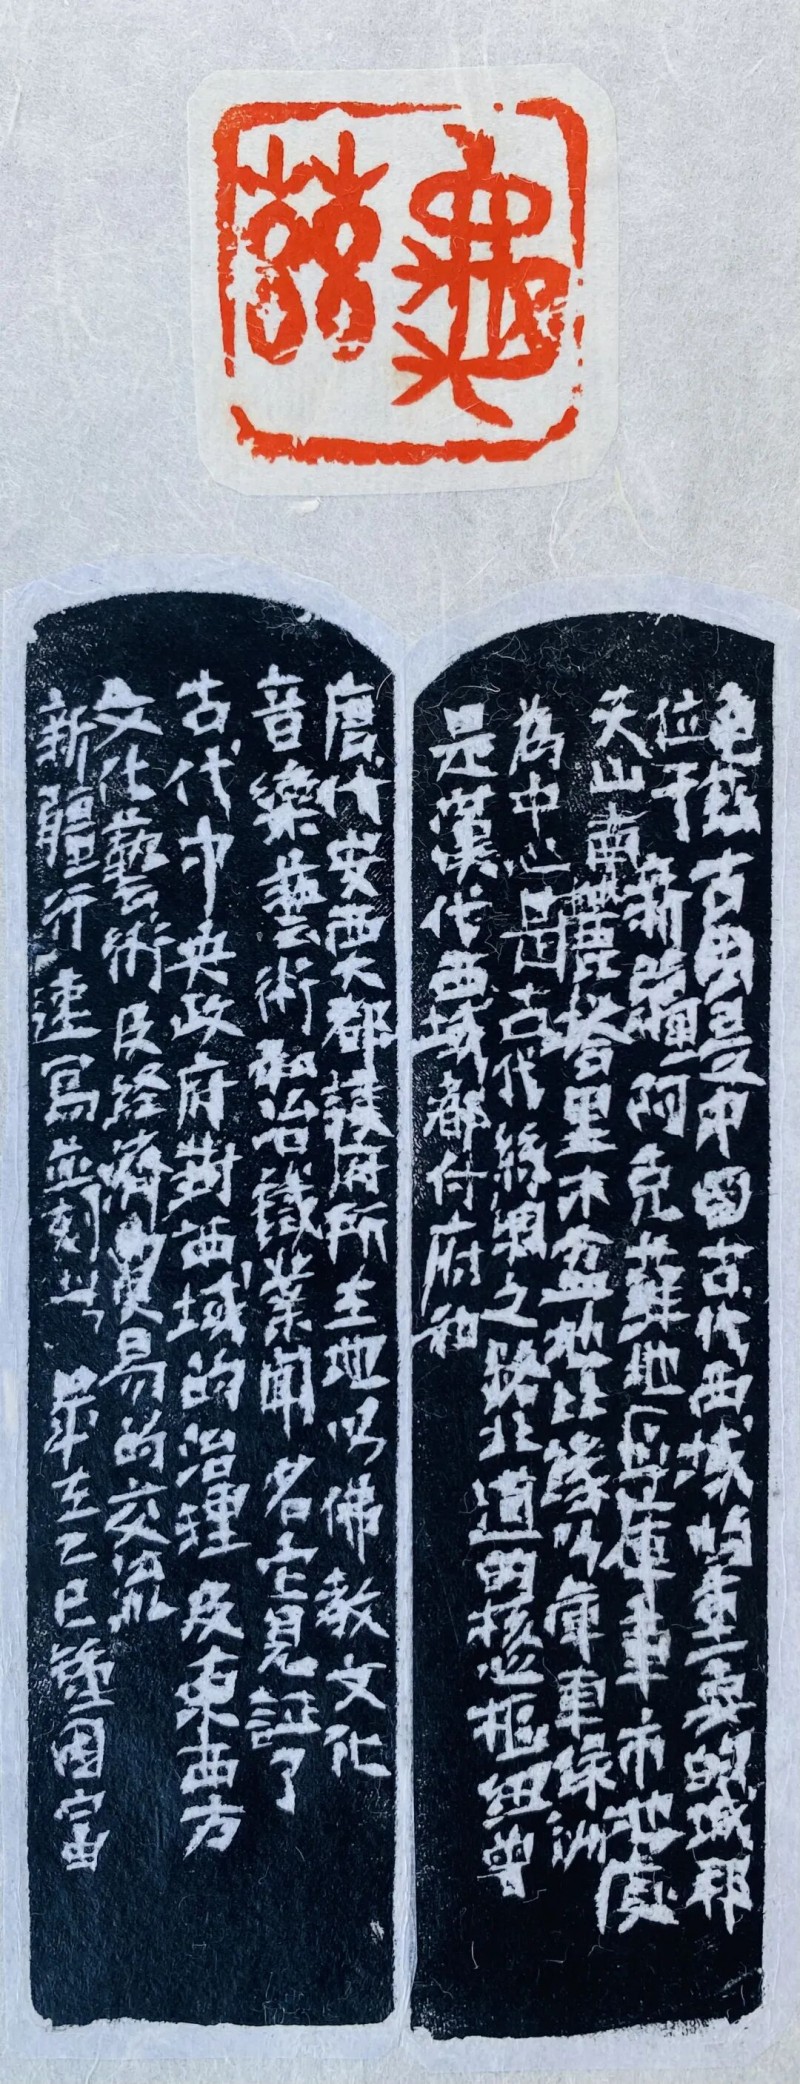 龜兹
龟兹古国是中国古代西域的重要的城邦
位于新疆阿克蘇地區庫車市地處
天山南麓塔里木盆地北缘以庫車绿洲
為中心是古代絲绸之路北道的核心樞纽曾
是漢代西域都付府和
唐代安西大都護府所在地以佛教文化
音樂藝術和冶鐵業聞名它見証了
古代中央政府對西域的治理及東西方
文化藝術及経濟貿易的交流
新疆行速寫並刻此 歲在乙巳鍾国富